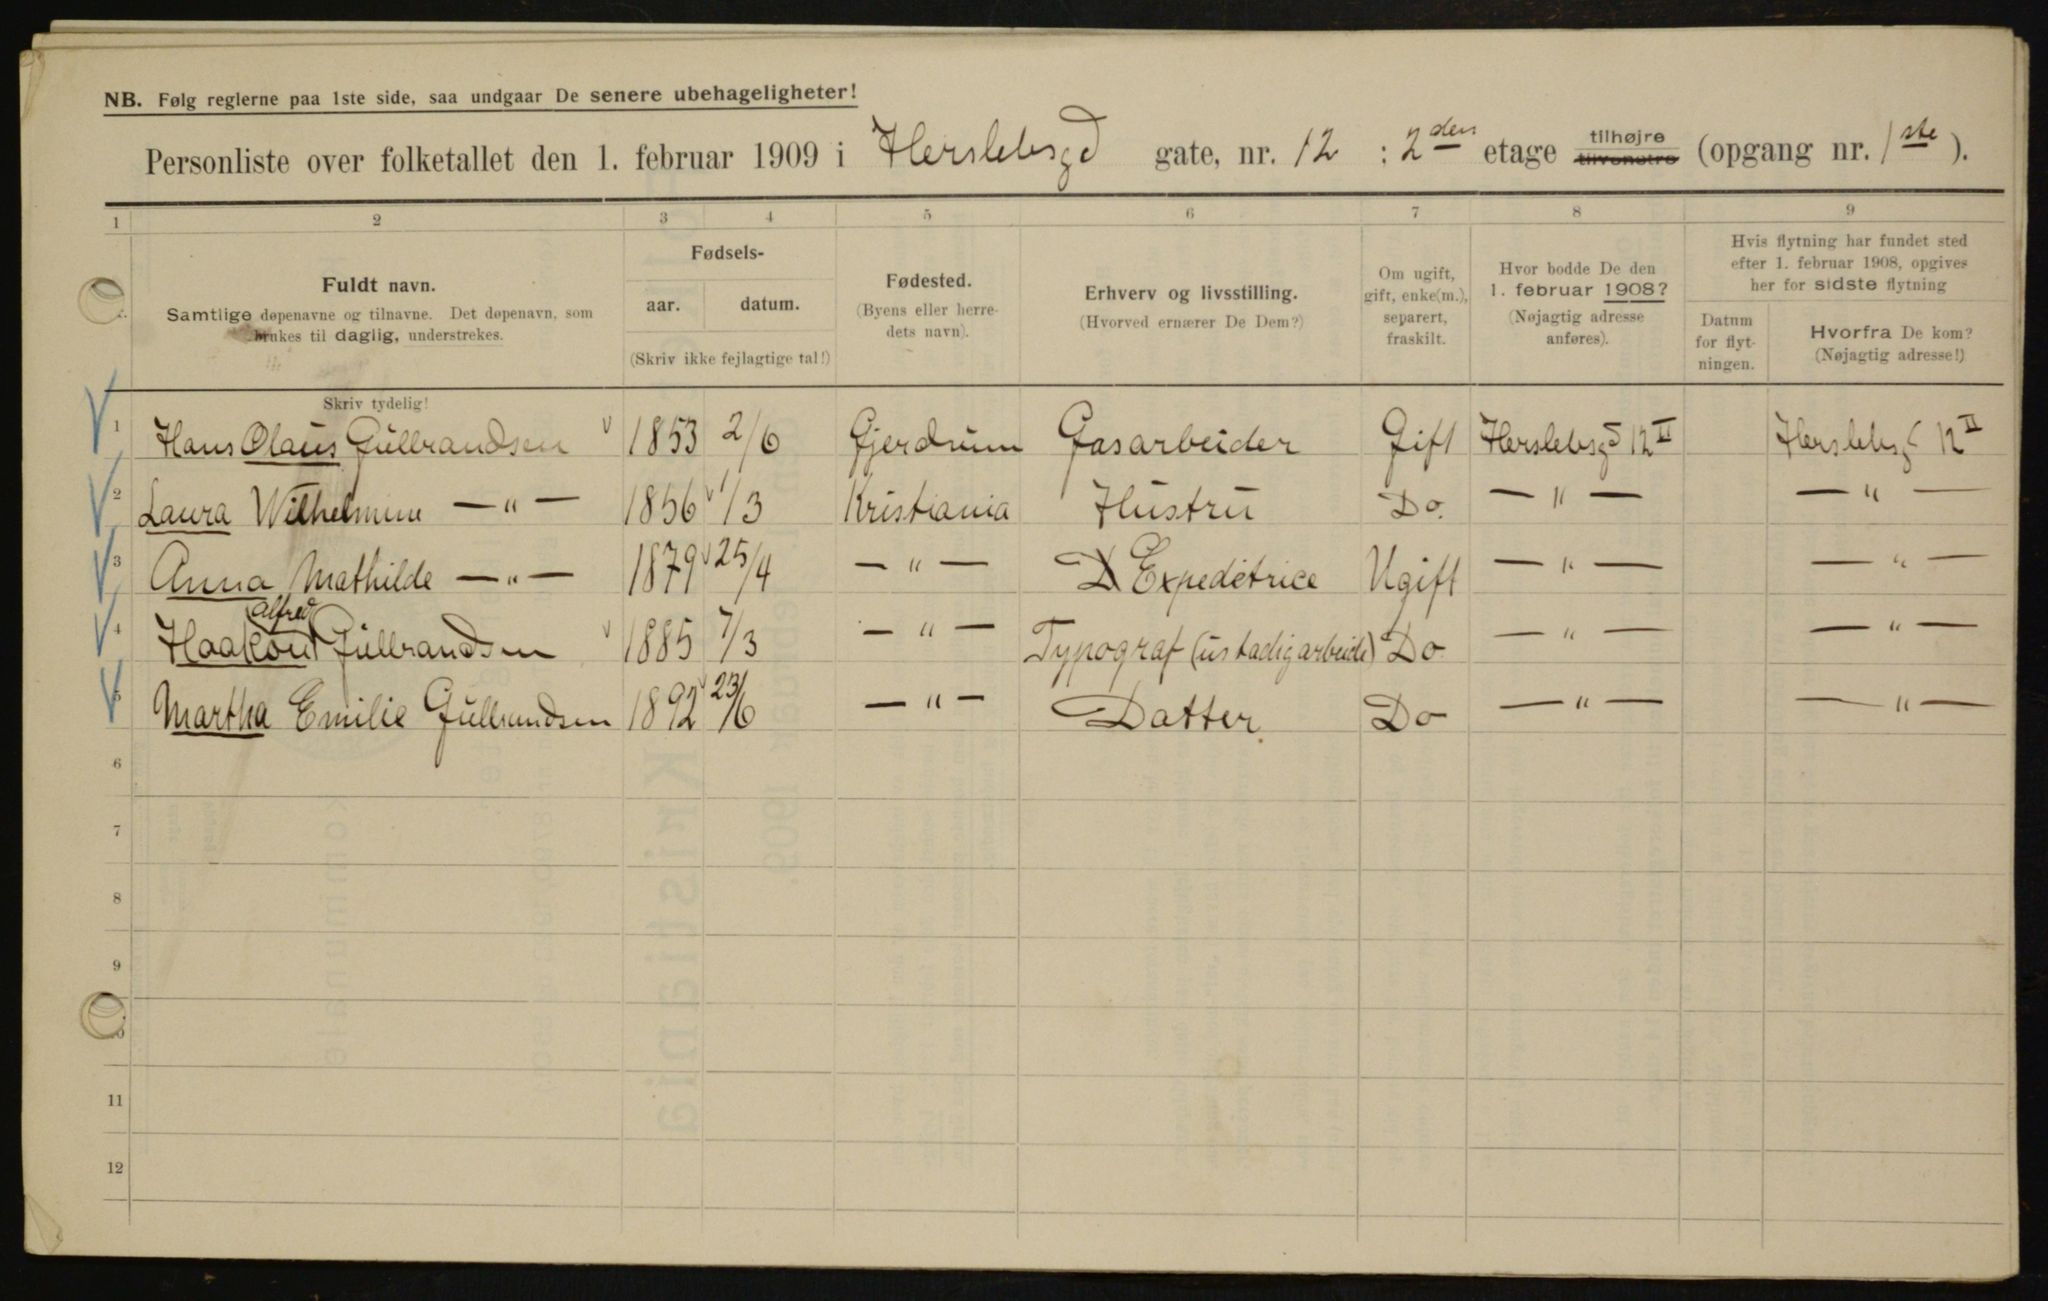 NB. Følg reglerne paa 1ste side, saa undgaar De senere ubehageligheter!
Personliste over folketallet den 1. februar 1909 i Herslebsgd gate, nr. 12 : 2den etage tilhøjre tilvenstre (opgang nr. 1ste ).
1 2 3 4 5 6 7 8 9
Fuldt navn.
Samtlige døpenavne og tilnavne. Det døpenavn, som
brukes til daglig, understrekes.
Fødsels-
aar. datum.
(Skriv ikke fejlagtige tal!)
Fødested.
(Byens eller herre-
dets navn).
Erhverv og livsstilling.
(Hvorved ernærer De Dem?)
Om ugift,
gift, enke(m.),
separert,
fraskilt.
Hvor bodde De den
1. februar 1908?
(Nøjagtig adresse
anføres).
Hvis flytning har fundet sted
efter 1. februar 1908, opgives
her for sidste flytning
Datum
for flyt-
ningen.
Hvorfra De kom?
(Nøjagtig adresse!)
Skriv tydelig!
1 Hans Olaus Gullbrandsen 1853 2/6 Gjerdrum Gasarbeider Gift Herslebsgd 12 II Herslebsgd 12 II
2 Laura Wilhelmine — " — 1856 1/3 Kristiania Hustru Do. — " — — " —
3 Anna Mathilde — " — 1879 25/4 — " — Expeditrice Ugift — " — — " —
Alfred
4 Haakon Gullbrandsen 1885 7/3 — " — Typograf (ustadig arbeide) Do — " — — " —
5 Martha Emilie Gullbrandsen 1892 23/6 — " — Datter Do — " — — " —
6
7
8
9
11
12